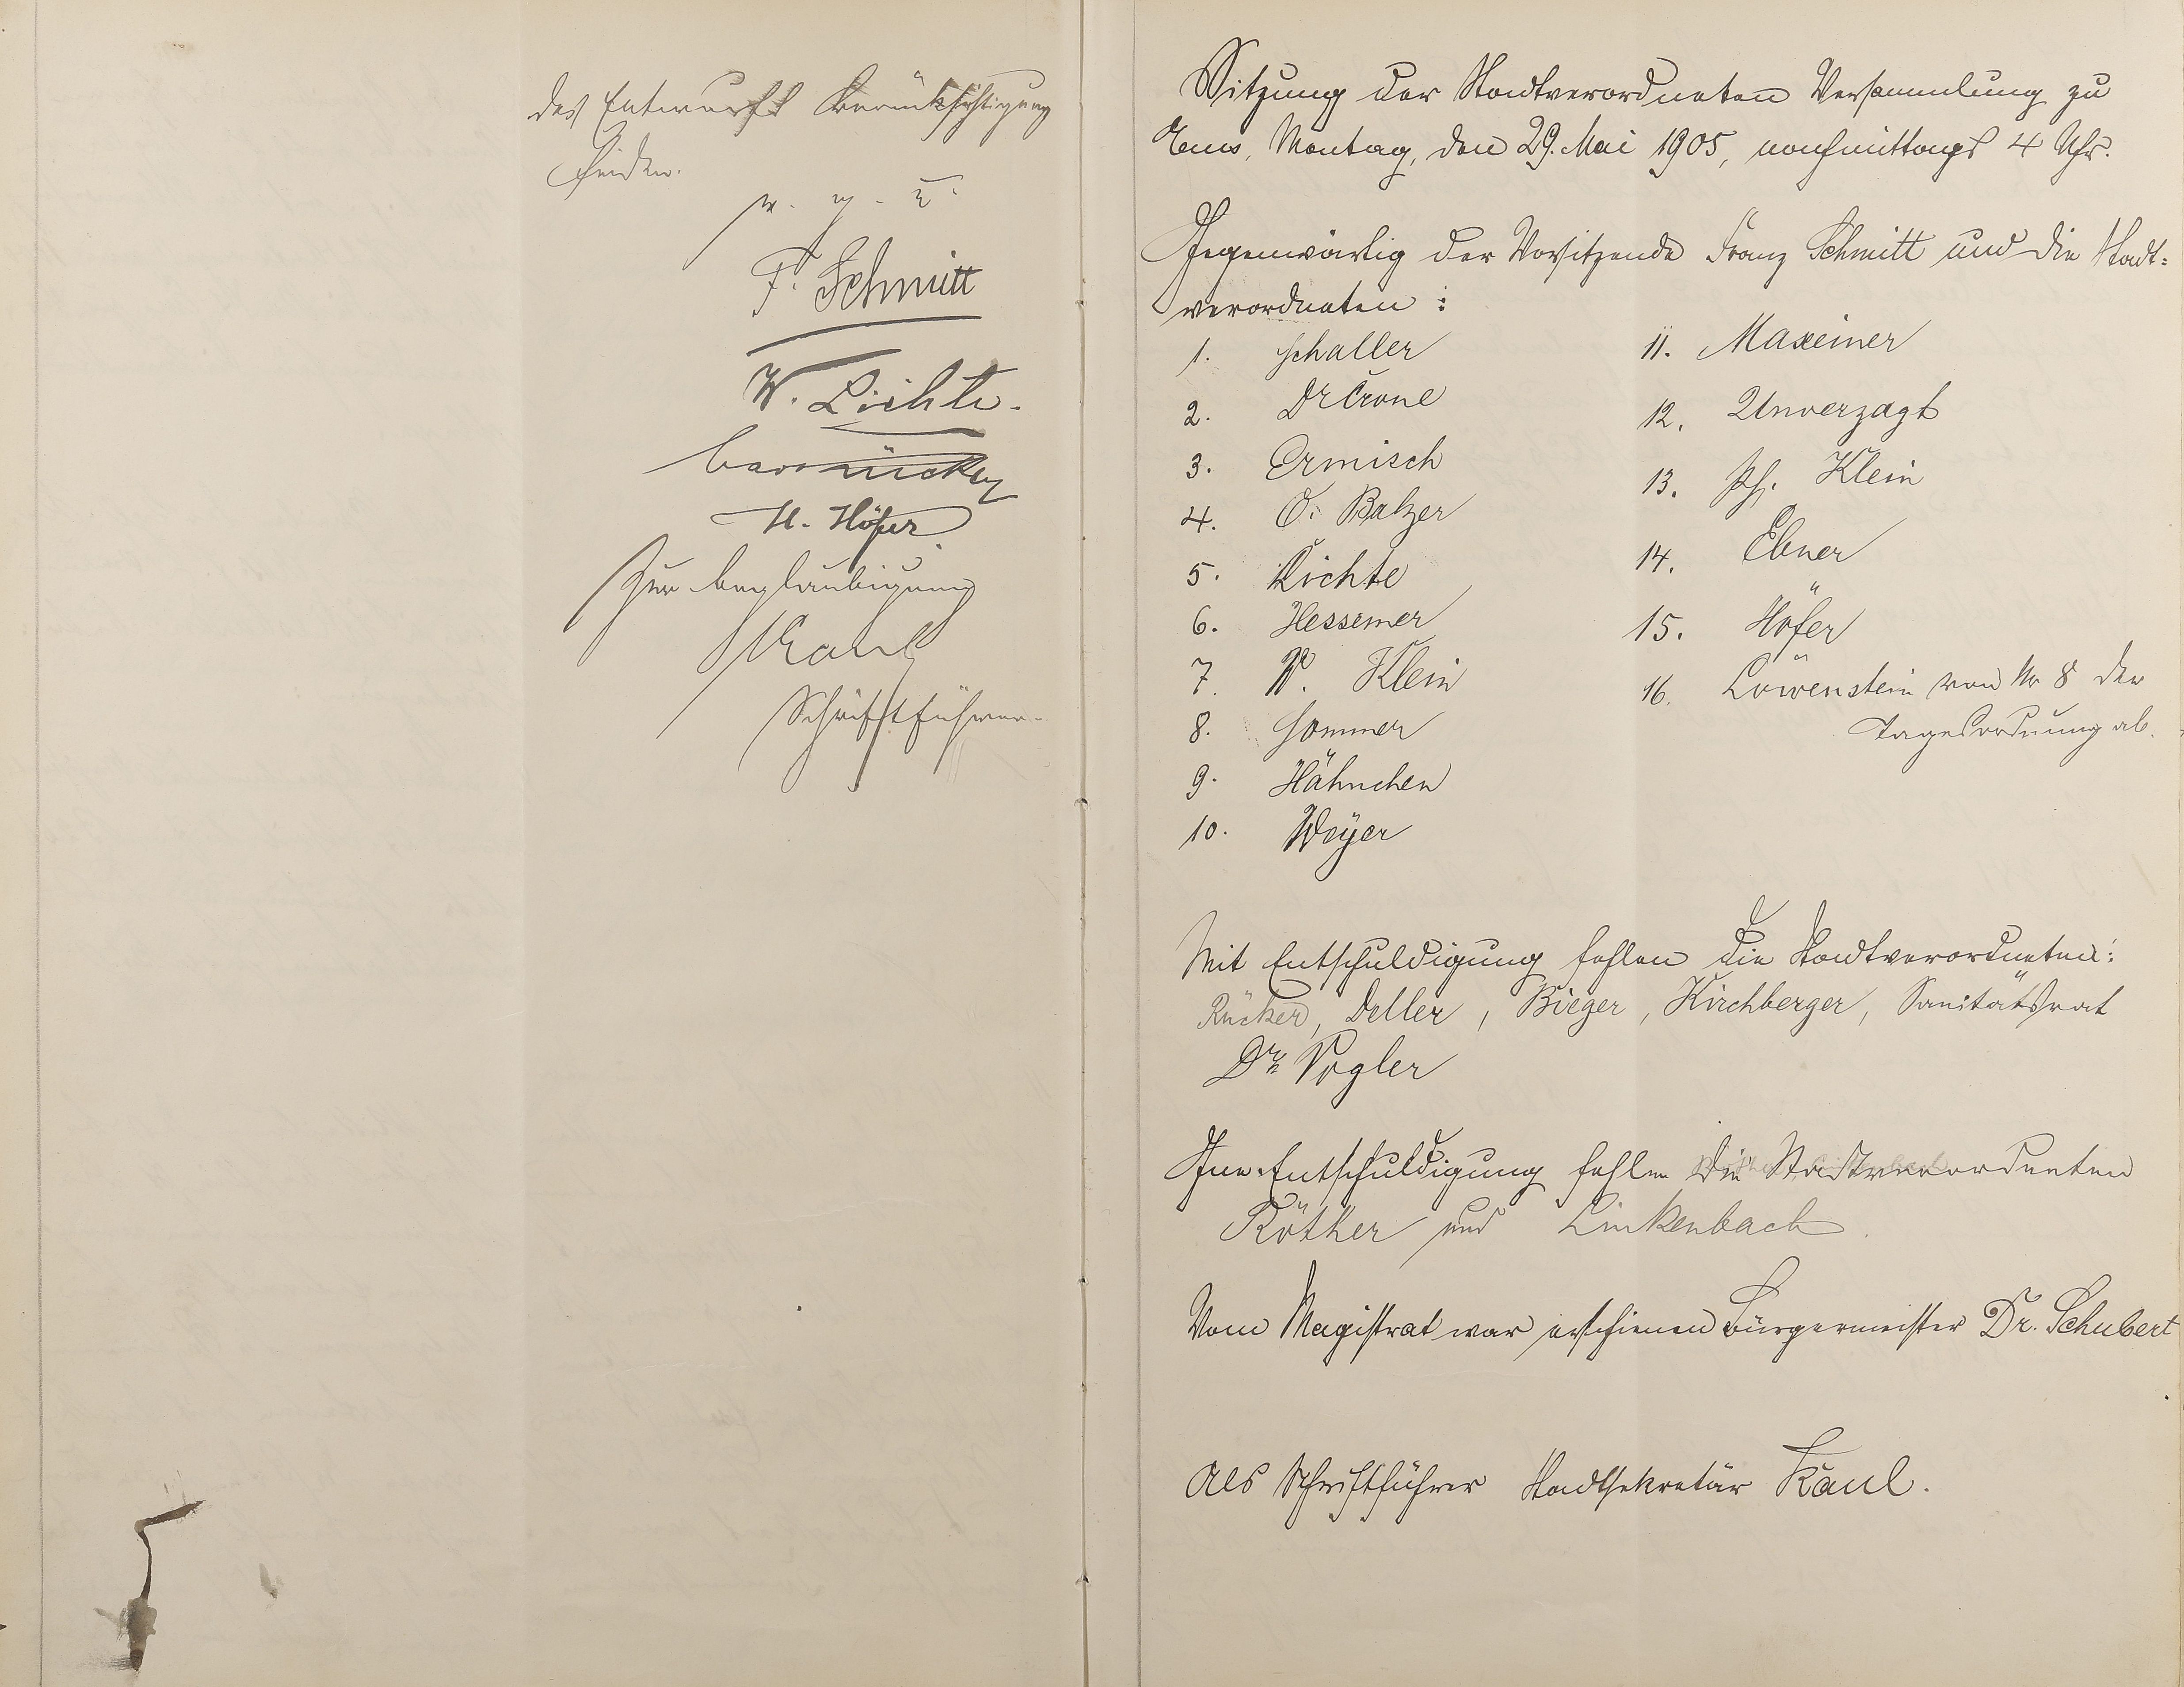 des Entwurfs Berücksichtigung
finden.
v. g. u.
F. Schmitt
W. Lichte.
H. Höfer
Zur Beglaubigung
Kaul
Schriftführer.
Sitzung der Stadtverordneten Versammlung zu
Ems, Montag, den 29. Mai 1905, nachmittags 4 Uhr.
Gegenwärtig der Vorsitzende Franz Schmitt und die Stadt=
verordneten:
1. Schaller
2. Dr Crone
3. Ermisch
4. O. Balzer
5. Lichte
6. Hessemer
7. W. Klein
8. Sommer
9. Hähnchen
10. Weyer
11. Maxeiner
12. Unverzagt
13. Ph. Klein
14. Ebner
15. Höfer
16. Löwenstein von Nr 8 der
Tagesordnung ab.
Mit Entschuldigung fehlen die Stadtverordneten:
Rücker, Deller, Bieger, Kirchberger, Sanitätsrat
Dr. Vogler
Ohne Entschuldigung fehlen die Stadtverordneten
Röther und Linkenbach.
Vom Magistrat war erschienen Bürgermeister Dr. Schubert
Als Schriftführer Stadtsekretär Kaul.